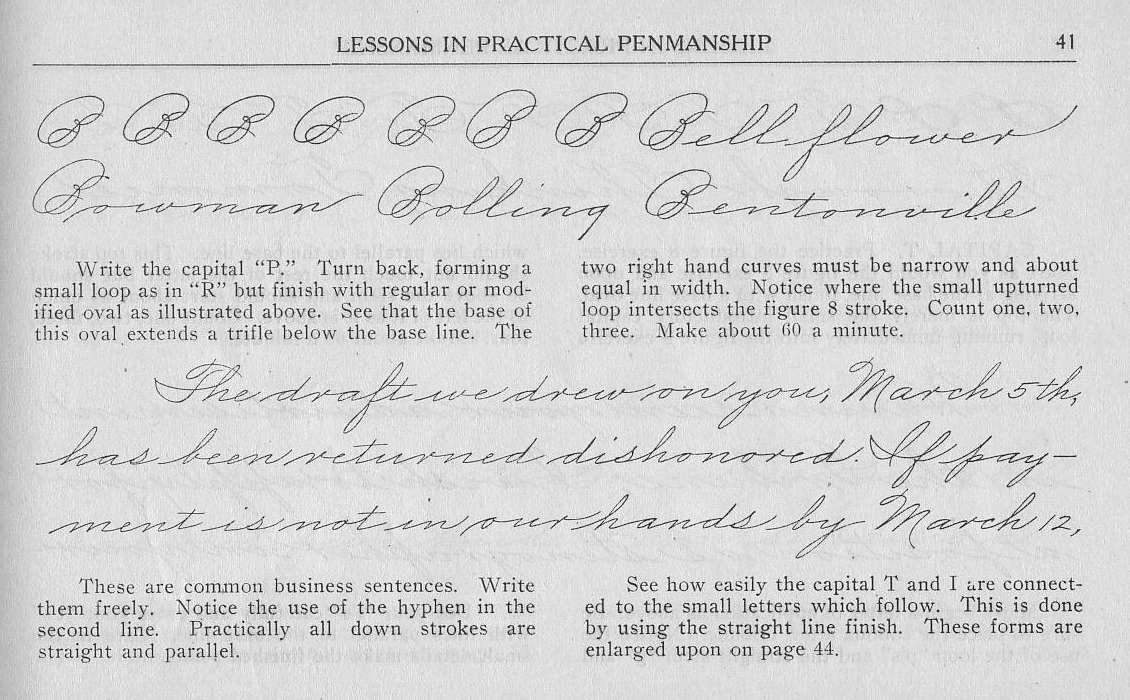 LESSONS IN PRACTICAL PENMANSHIP 41
B B B B B B B Bellflower
Bowman Bolling Bentonville
Write the capital “P.” Turn back, forming a
small loop as in “R” but finish with regular or mod-
ified oval as illustrated above. See that the base of
this oval extends a trifle below the base line. The
two right hand curves must be narrow and about
equal in width. Notice where the small upturned
loop intersects the figure 8 stroke. Count one, two,
three. Make about 60 a minute.
The draft we drew on you, March 5th,
has been returned dishonored. If pay-
ment is not in our hands by March 12,
These are common business sentences. Write
them freely. Notice the use of the hyphen in the
second line. Practically all down strokes are
straight and parallel.
See how easily the capital T and I are connect-
ed to the small letters which follow. This is done
by using the straight line finish. These forms are
enlarged upon on page 44.